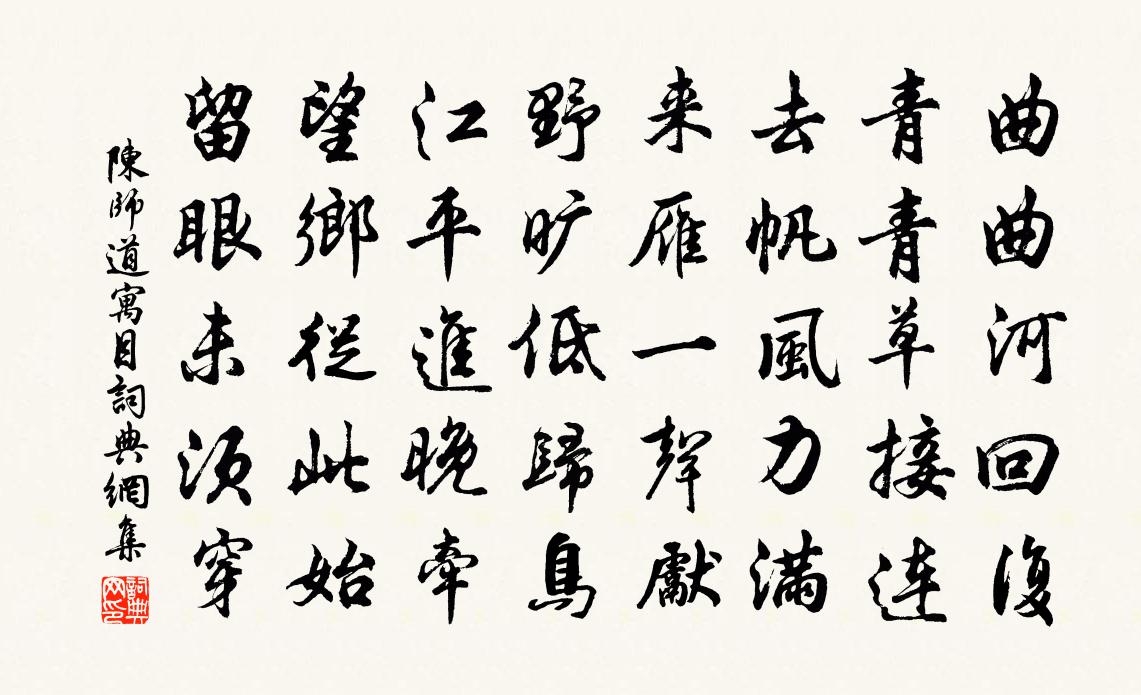 曲曲河回復
青青草接連
去帆風力滿
来雁一聲獻
野旷低歸鳥
江平進晚牽
望鄉從此始
留眼未須穿
陳師道寓目詞典網集
詞典
网印